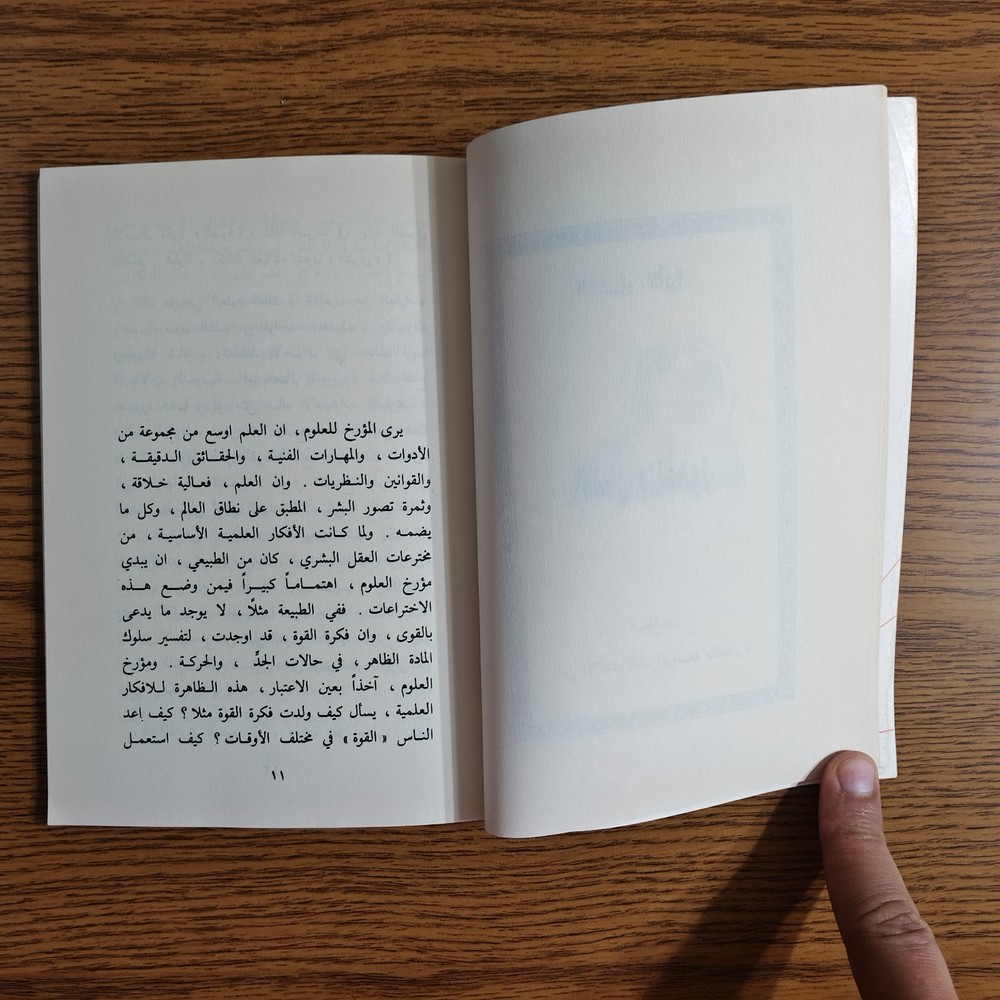 يرى المؤرخ للعلوم ، ان العلم اوسع من مجموعة من
الأدوات ، والمهارات الفنية ، والحقائق الدقيقة ،
والقوانين والنظريات . وان العلم ، فعالية خلاقة ،
وثمرة تصور البشر ، المطبق على نطاق العالم ، وكل ما
يضمه . ولما كانت الأفكار العلمية الأساسية ، من
مخترعات العقل البشري ، كان من الطبيعي ، ان يبدي
مؤرخ العلوم ، اهتماماً كبيراً فيمن وضع هذه
الاختراعات . ففي الطبيعة مثلًا ، لا يوجد ما يدعى
بالقوى ، وان فكرة القوة ، قد اوجدت ، لتفسير سلوك
المادة الظاهر ، في حالات الجدِّ ، والحركة . ومؤرخ
العلوم ، آخذاً بعين الاعتبار ، هذه الظاهرة للافكار
العلمية ، يسأل كيف ولدت فكرة القوة مثلا ؟ كيف اعد
الناس « القوة » في مختلف الأوقات ؟ كيف استعمل
١١